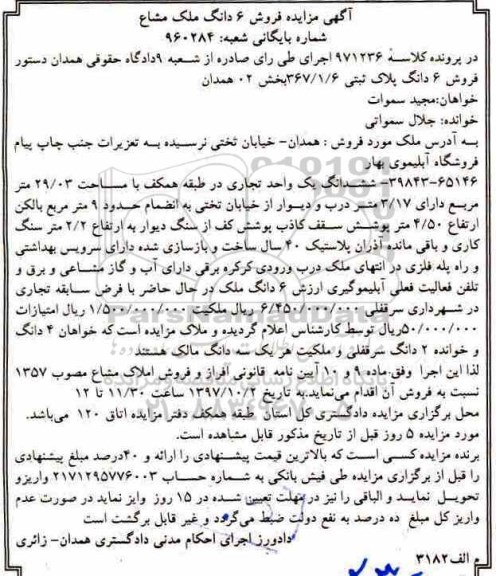 آگهی مزایده فروش ۶ دانگ ملک مشاع
شماره بایگانی شعبه: ۹۶۰۲۸۴
در پرونده کلاسه ۹۷۱۲۳۶ اجرای طی رای صادره از شعبه ۹دادگاه حقوقی همدان دستور
فروش ۶ دانگ پلاک ثبتی ۳۶۷/۱/۶بخش ۰۲ همدان
خواهان:مجید سموات
خوانده: جلال سمواتی
به آدرس ملک مورد فروش : همدان- خیابان تختی نرسیده به تعزیرات جنب چاپ پیام
فروشگاه آبلیموی بهار
۶۵۱۴۶-۳۹۸۴۳- ششدانگ یک واحد تجاری در طبقه همکف با مساحت ۲۹/۰۳ متر
مربع دارای ۳/۱۷ متر درب و دیوار از خیابان تختی به انضمام حدود ۹ متر مربع بالکن
ارتفاع ۴/۵۰ متر پوشش سقف کاذب پوشش کف از سنگ دیوار به ارتفاع ۲/۲ متر سنگ
کاری و باقی مانده آذران پلاستیک ۴۰ سال ساخت و بازسازی شده دارای سرویس بهداشتی
و راه پله فلزی در انتهای ملک درب ورودی کرکره برقی دارای آب و گاز مشاعی و برق و
تلفن فعالیت فعلی آبلیموگیری ارزش ۶ دانگ ملک در حال حاضر با فرض سابقه تجاری
در شهرداری سرقفلی ریال ملکیت ریال امتیازات
۵۰/۰۰۰/۰۰۰ریال توسط کارشناس اعلام گردیده و ملاک مزایده است که خواهان ۴ دانگ
و خوانده ۲ دانگ سرقفلی و ملکیت هر یک سه دانگ مالک هستند
لذا این اجرا وفق ماده ۹ و ۱۰ آیین نامه قانونی افراز و فروش املاک مشاع مصوب ۱۳۵۷
نسبت به فروش آن اقدام می‌نماید.به تاریخ ۱۳۹۷/۱۰/۲ ساعت ۱۱/۳۰ تا ۱۲
محل برگزاری مزایده دادگستری کل استان طبقه همکف دفتر مزایده اتاق ۱۲۰ می‌باشد.
مورد مزایده ۵ روز قبل از تاریخ مذکور قابل مشاهده است.
برنده مزایده کسی است که بالاترین قیمت پیشنهادی را ارائه و ۴۰درصد مبلغ پیشنهادی
را قبل از برگزاری مزایده طی فیش بانکی به شماره حساب ۲۱۷۱۲۹۵۷۷۶۰۰۳ واریزو
تحویل نماید و الباقی را نیز در مهلت تعیین شده در ۱۵ روز وایز نماید در صورت عدم
واریز کل مبلغ ده درصد به نفع دولت ضبط می‌گردد و غیر قابل برگشت است
دادورز اجرای احکام مدنی دادگستری همدان- زائری
م الف۳۱۸۲